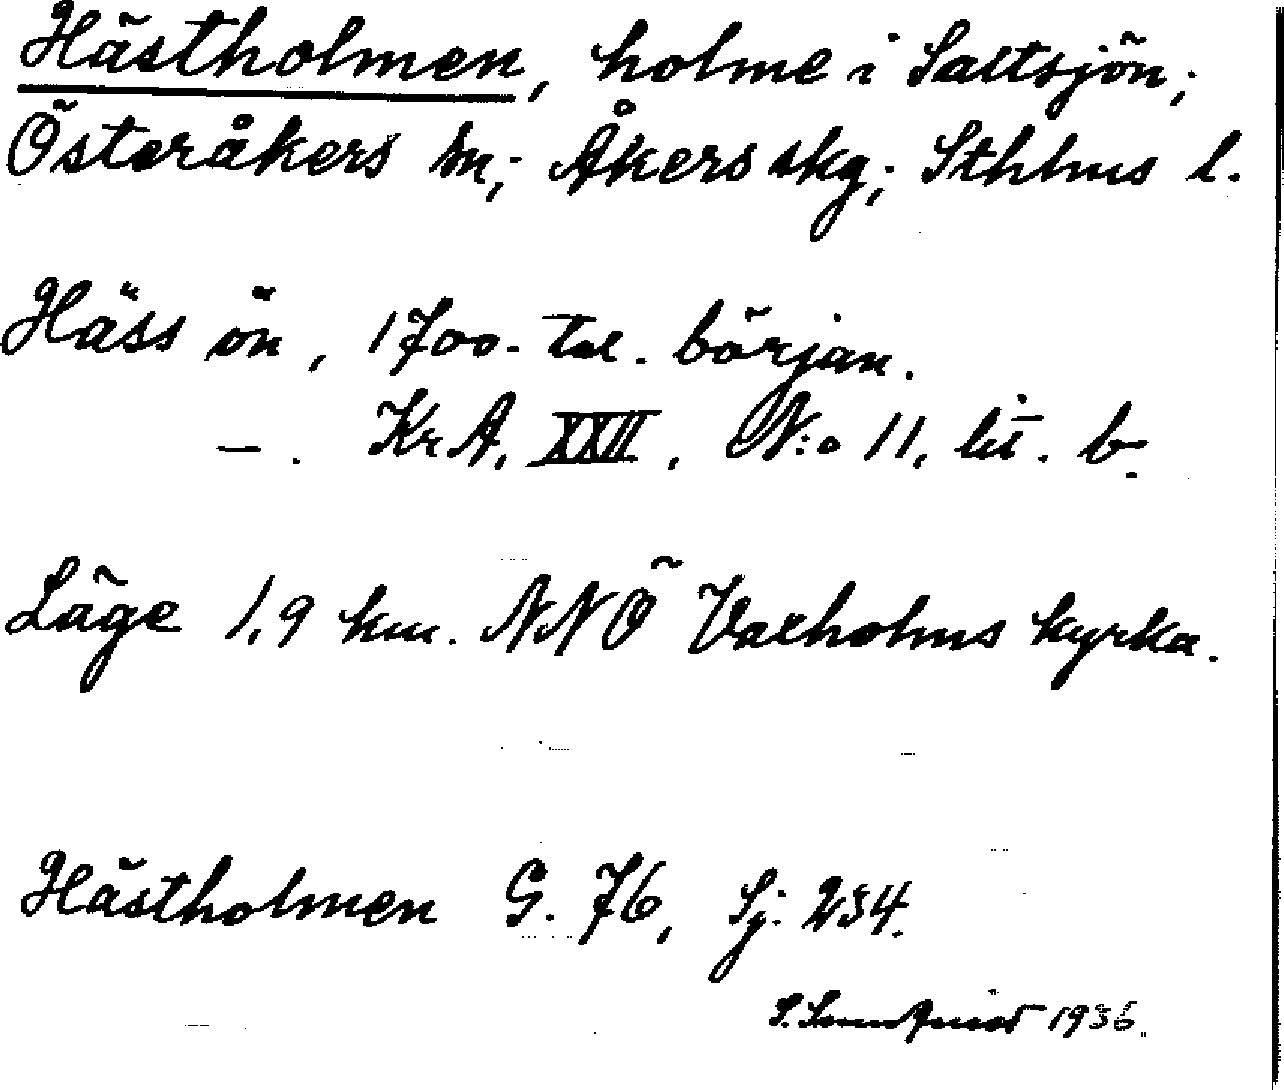 Hästholmen, holme i Saltsjön;
Österåkers sn; Åkers skg; Sthlms l.
Häss ön, 1700-tal. början.
— . KrA. XXII, N:o 11, lit. b.
Läge 1,9 km. NNÖ Vaxholms kyrka.
Hästholmen G. 76, Sj. 234.
S. 1936.